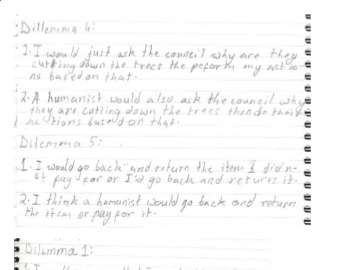 Dillemma 4:
1. I would just ask the council why are they
cutting down the trees the peform my actio-
ns based on that.
2. A humanist would also ask the council why
they are cutting down the trees then do their
actions based on that.
Dilemma 5:
1. I would go back and return the item I didn-
t pay for or I'd go back and return it.
2. I think a humanist would go back and return
the item or pay for it.
Dilemma 1: